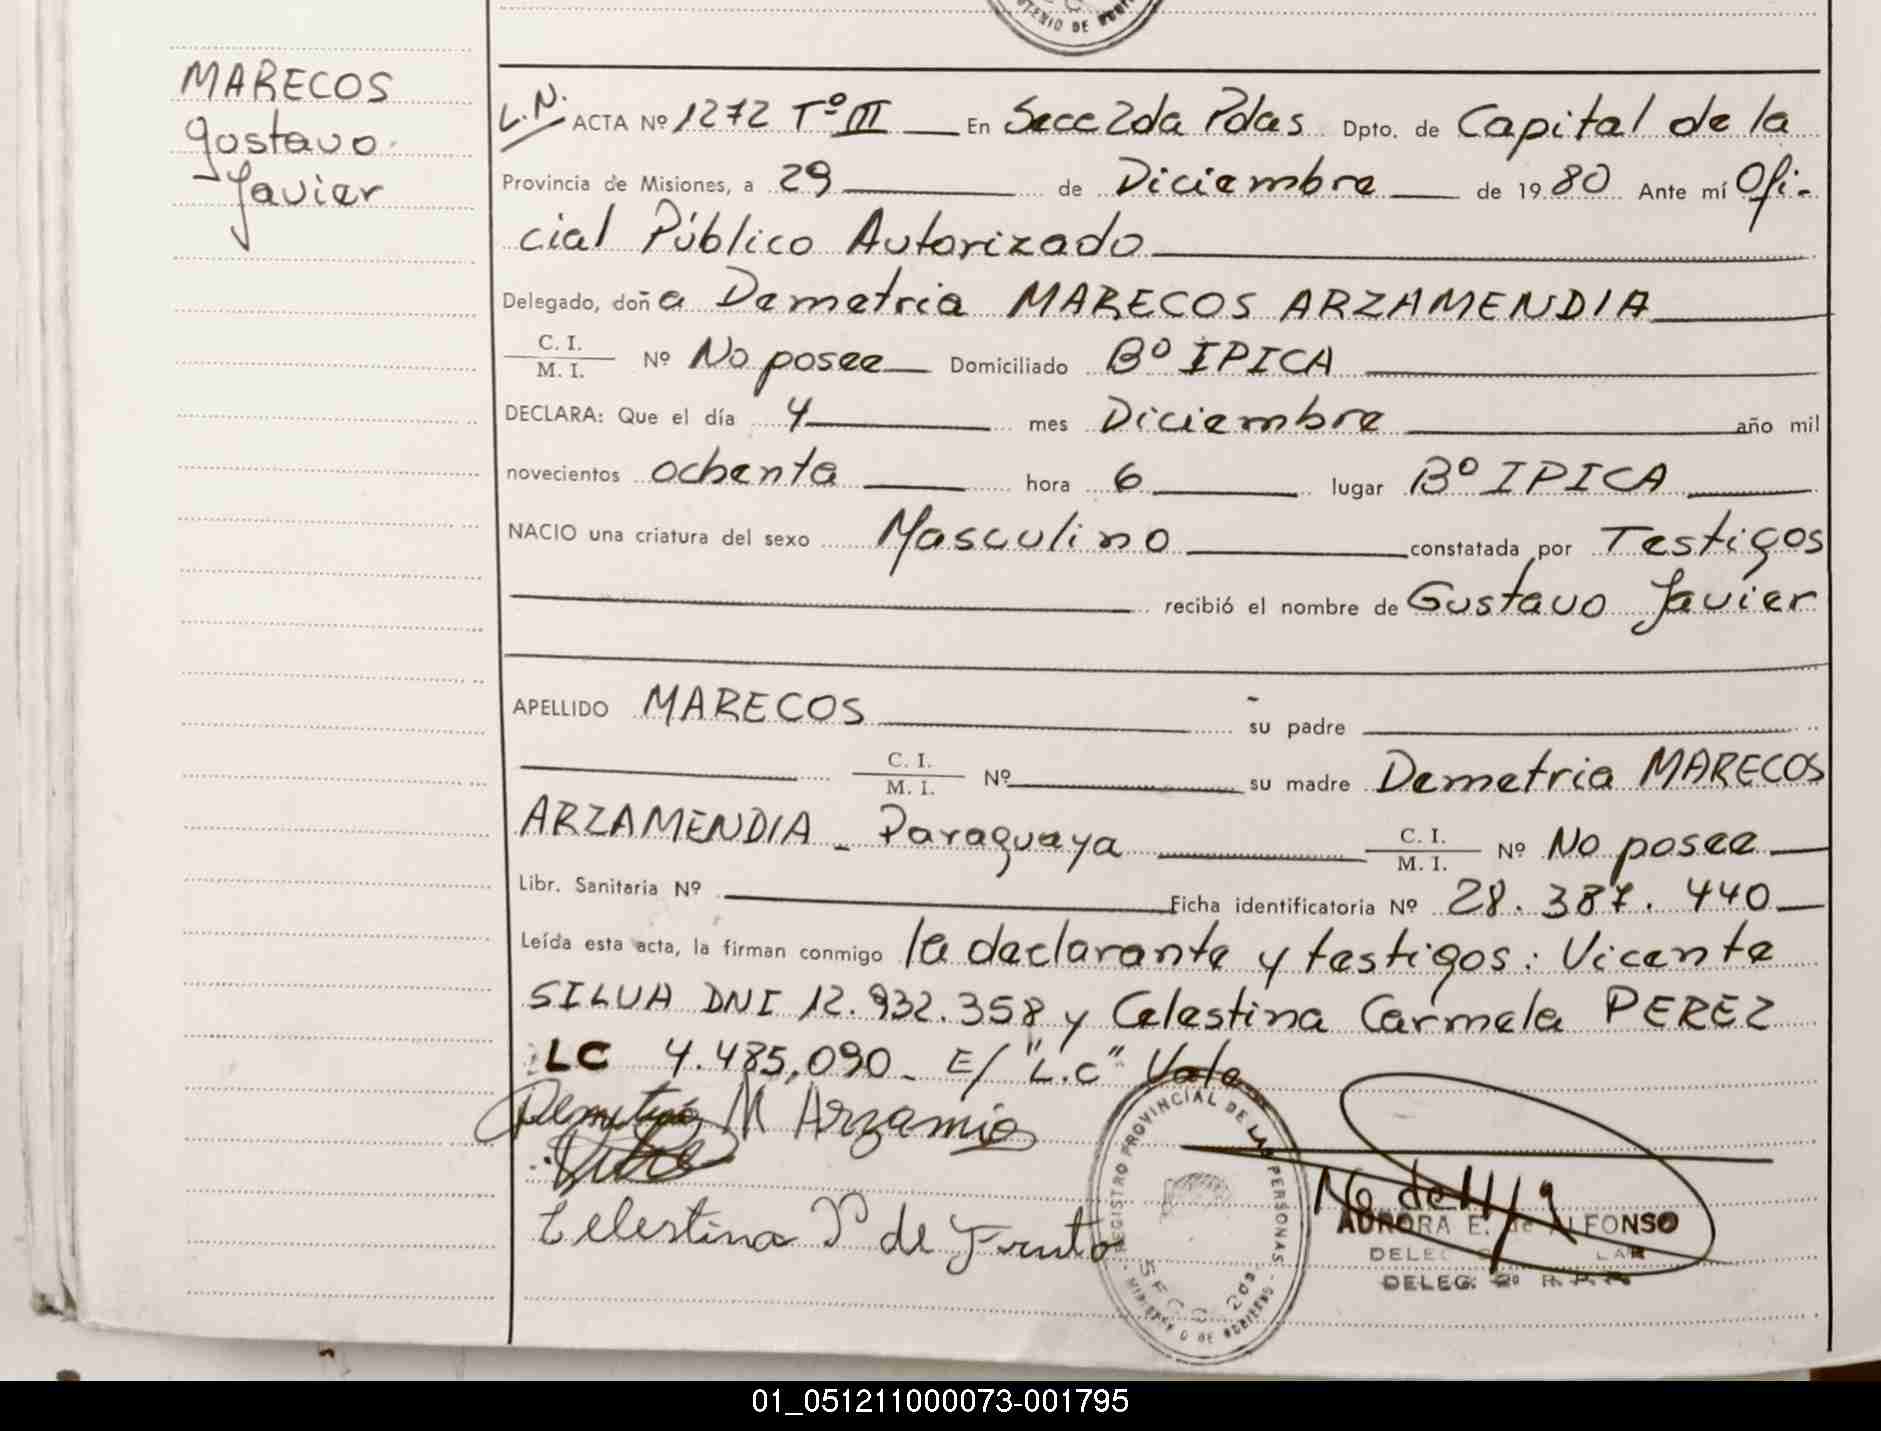 MARECOS
Gustavo
Javier
L.N. ACTA Nº 1272 Tº III En Secc 2da Pdas Dpto. de Capital de la
Provincia de Misiones, a 29 de Diciembre de 1980 Ante mí Ofi-
cial Público Autorizado
Delegado, doña Demetria MARECOS ARZAMENDIA
C. I.
M. I. Nº No posee Domiciliado Bº IPICA
DECLARA: Que el día 4 mes Diciembre año mil
novecientos ochenta hora 6 lugar Bº IPICA
NACIO una criatura del sexo Masculino constatada por Testigos
recibió el nombre de Gustavo Javier
APELLIDO MARECOS su padre
C. I.
M. I. Nº su madre Demetria MARECOS
ARZAMENDIA - Paraguaya C. I.
M. I. Nº No posee
Libr. Sanitaria Nº Ficha identificatoria Nº 28.387.440
Leída esta acta, la firman conmigo la declarante y testigos: Vicente
SILVA DNI 12.932.358 y Celestina Carmela PEREZ
LC 4.485.090 - E/ "L.C" Vale
Demetria M Arzamia
Celestina P de Fruto
REGISTRO PROVINCIAL DE LAS PERSONAS
SECC. 2da
MINISTERIO DE GOBIERNO
AURORA E. de ALFONSO
DELEG. 2º R. P. P.
01_051211000073-001795